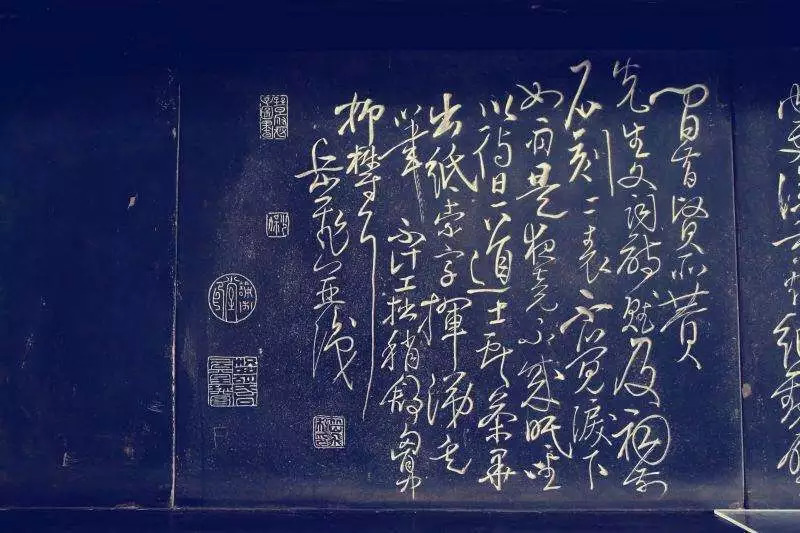 間昔賢所贊
先生文詞詩賦及祠前
石刻二表不覺淚下
如雨是夜竟不成眠坐
以待旦道士献茶畢
出紙索字揮涕走
筆不計工拙稍舒胸中
抑鬱耳
岳飛並識